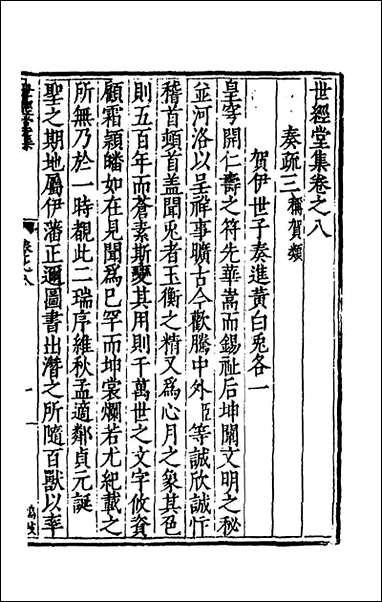 世經堂集卷之八
奏疏三 稱賀類
賀伊世子奏進黃白兎各一
皇穹開仁壽之符先華嵩而錫祉后坤闡文明之秘
並河洛以呈祥事曠古今歡騰中外臣等誠欣誠忭
稽首頓首盖聞兎者玉衡之精又為心月之象其色
則五百年而蒼素斯變其用則千萬世之文字攸資
顧霜穎皤如在見聞為已罕而坤裳爛若尤紀載之
所無乃於一時覩此二瑞序維秋孟適鄰貞元誕
聖之期地屬伊藩正邇圖書出潛之所隨百獸以率
卷之八
一